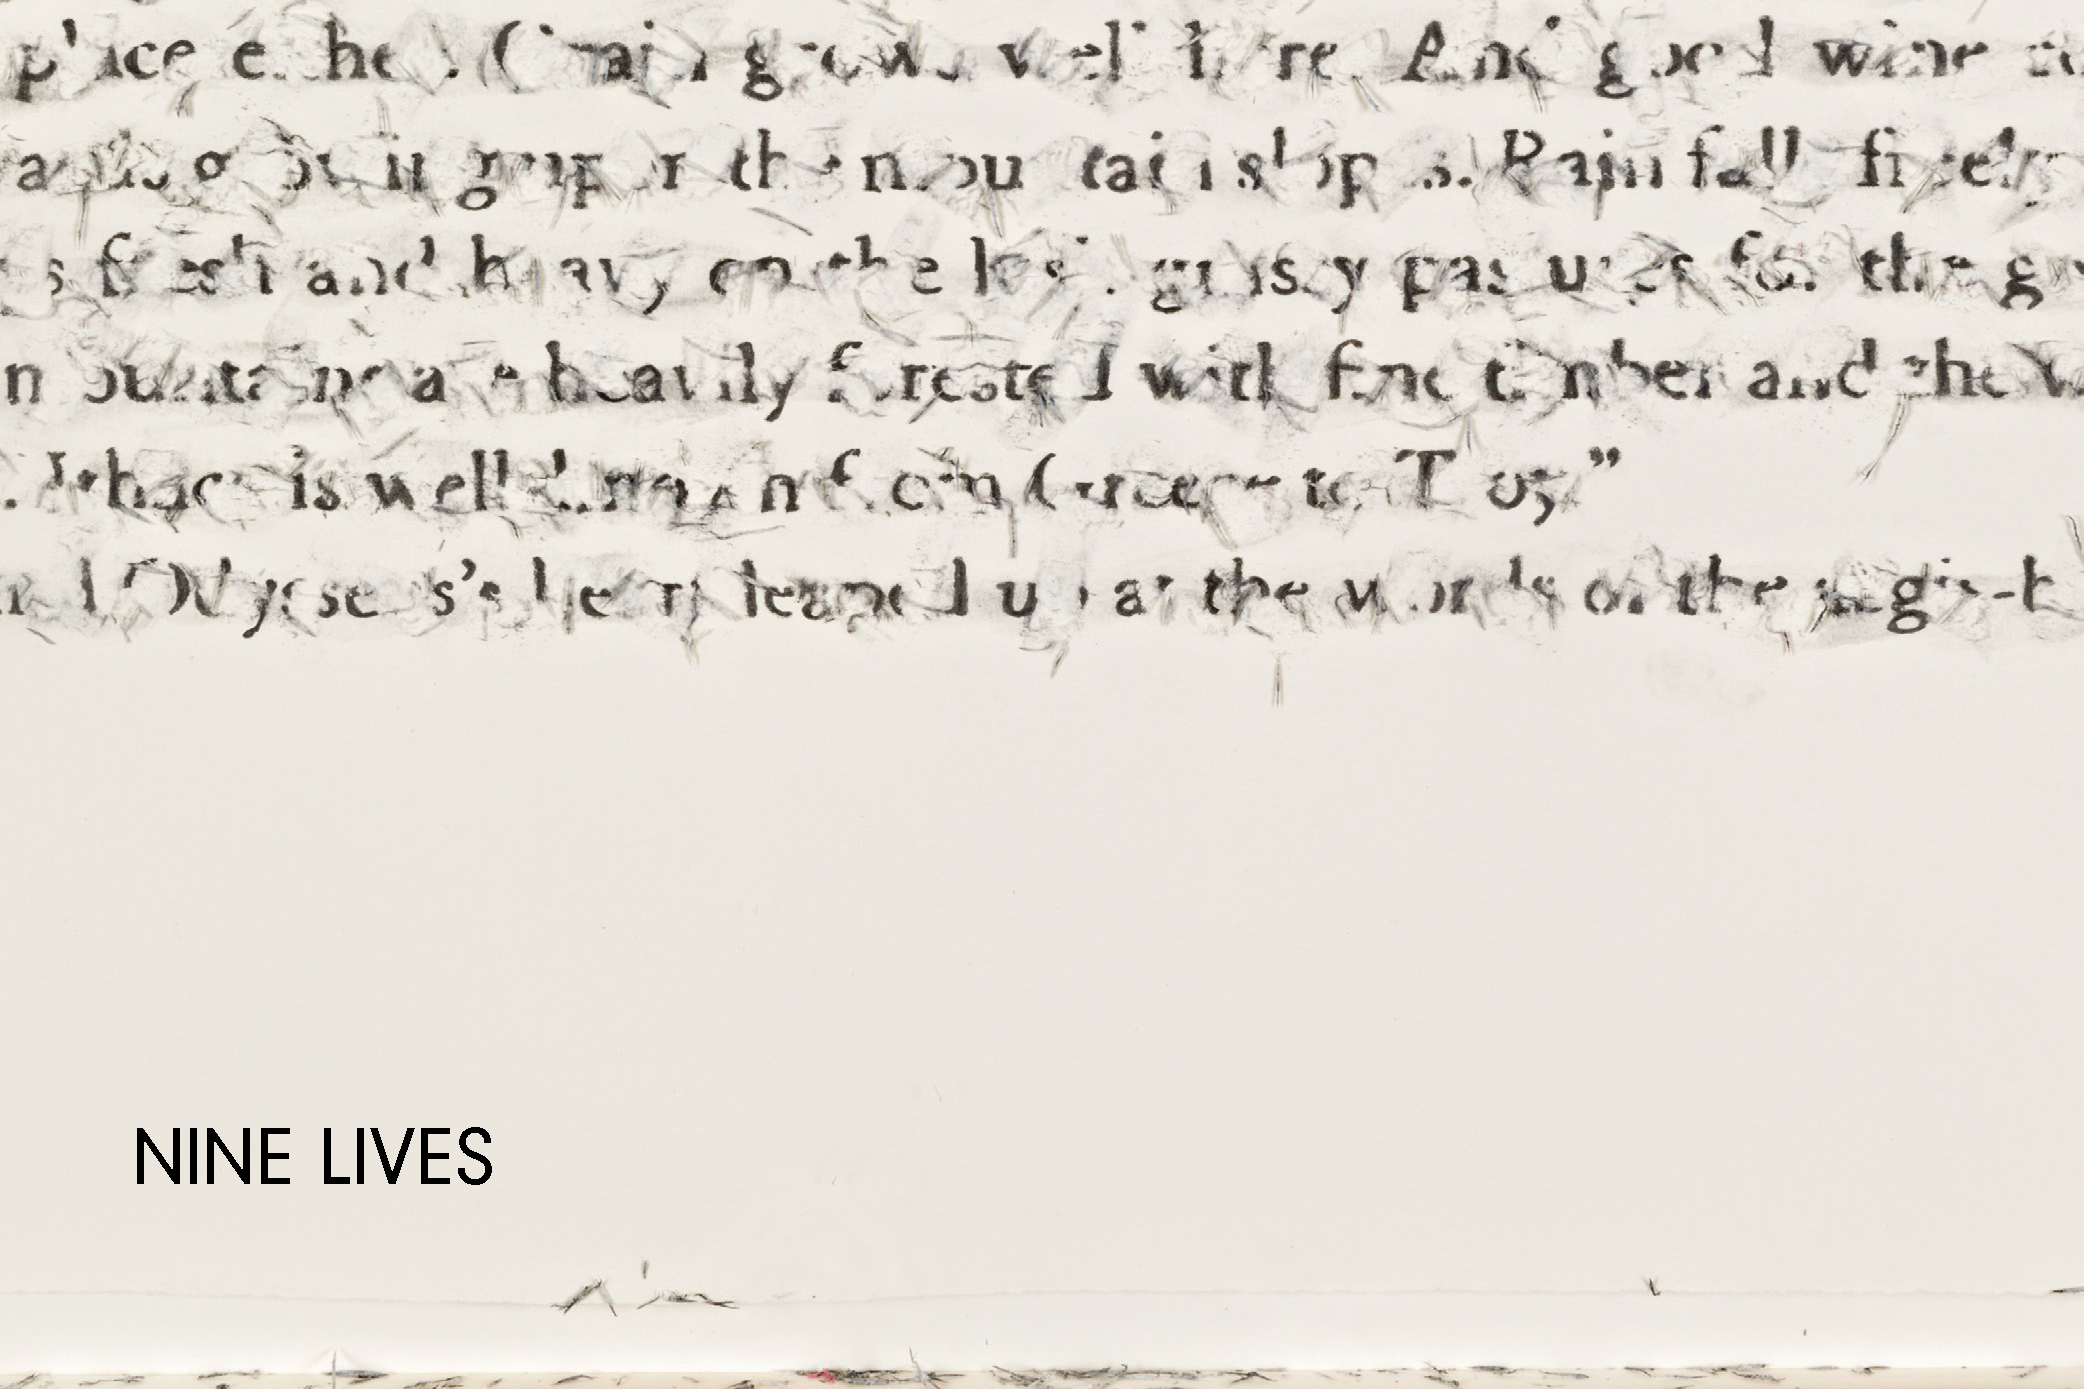 place either. Grain grows well here. And good wine
growing the mountain slopes. Rain falls freely
fresh and heavy on the grassy pastures for the
mountains are heavily forested with fine timber and the
Ithaca is well known from Greece to Troy”
Odysseus's heart leaped up at the words of the
NINE LIVES